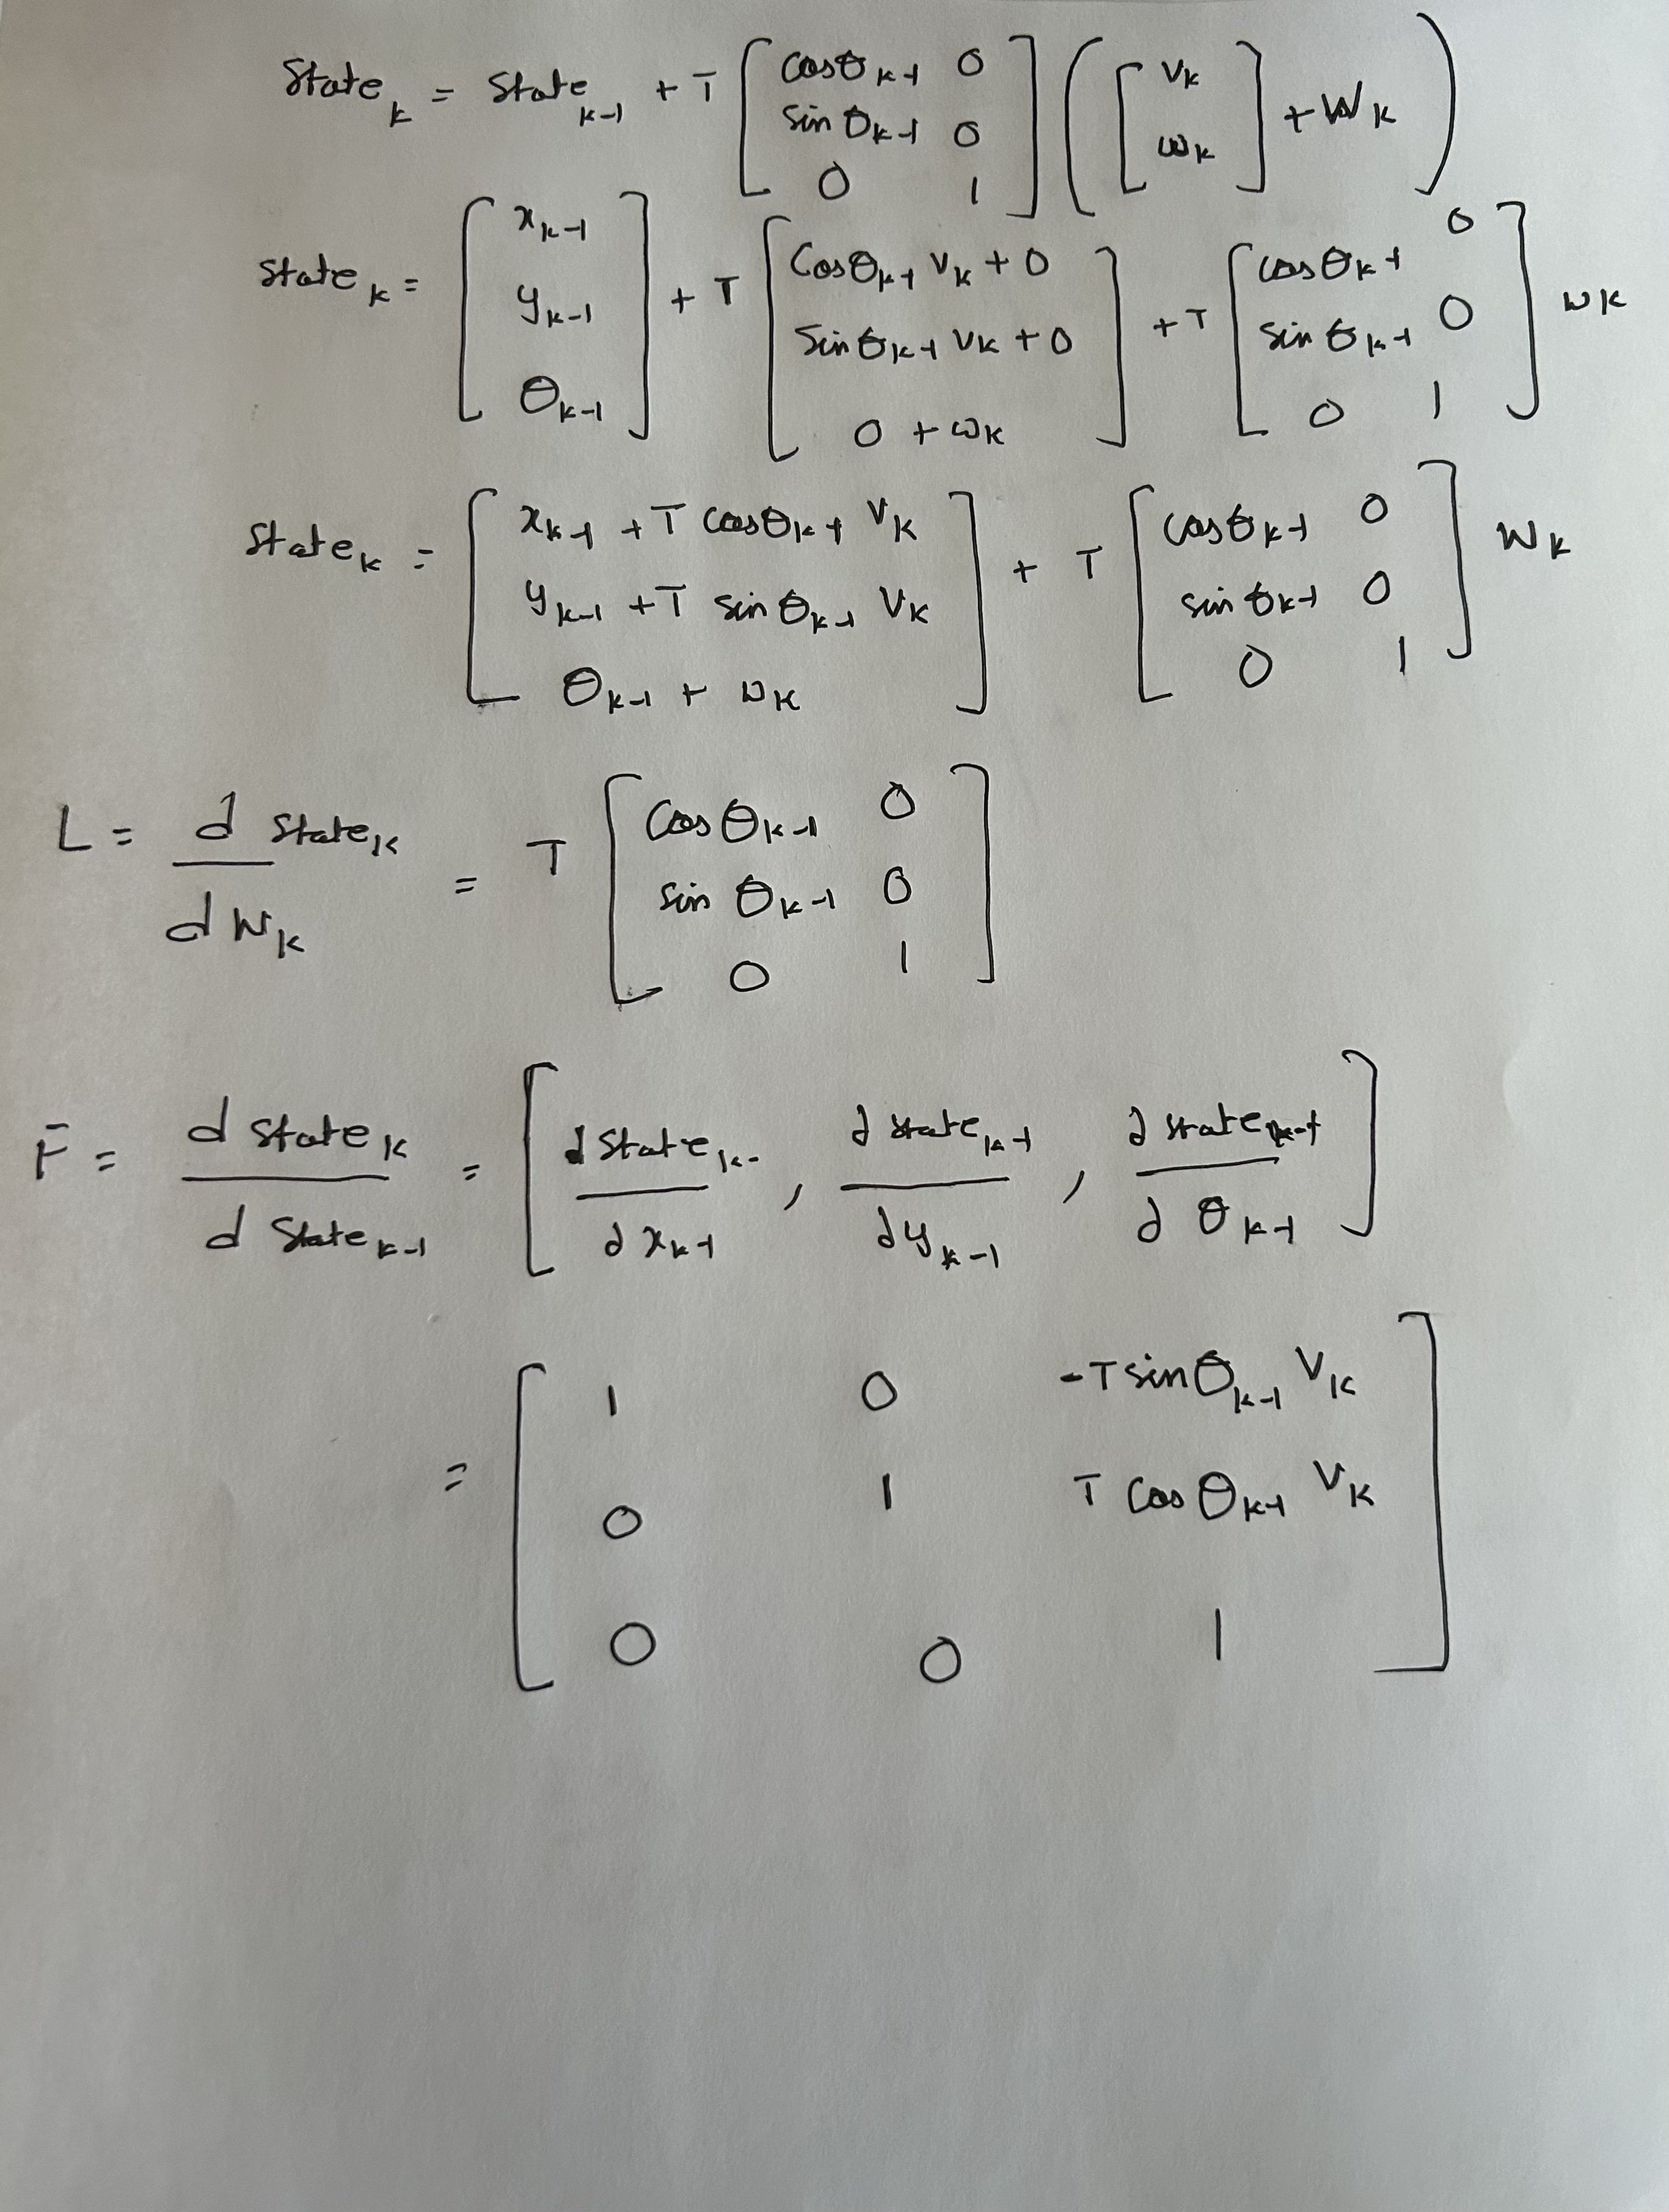 State_k = State_{k-1} + T [ cosθ_{k-1} 0 ; sinθ_{k-1} 0 ; 0 1 ] ( [ v_k ; ω_k ] + W_k )
State_k = [ x_{k-1} ; y_{k-1} ; θ_{k-1} ] + T [ Cosθ_{k-1} v_k + 0 ; Sinθ_{k-1} v_k + 0 ; 0 + ω_k ] + T [ cosθ_{k-1} 0 ; sinθ_{k-1} 0 ; 0 1 ] w_k
State_k = [ x_{k-1} + T cosθ_{k-1} v_k ; y_{k-1} + T sinθ_{k-1} v_k ; θ_{k-1} + w_k ] + T [ cosθ_{k-1} 0 ; sinθ_{k-1} 0 ; 0 1 ] W_k
L = d State_k / d W_k = T [ Cosθ_{k-1} 0 ; sinθ_{k-1} 0 ; 0 1 ]
F = d State_k / d State_{k-1} = [ ∂ State_{k-} / ∂ x_{k-1} , ∂ state_{k-1} / ∂ y_{k-1} , ∂ state_{k-1} / ∂ θ_{k-1} ]
= [ 1 0 -T sinθ_{k-1} v_k ; 0 1 T Cosθ_{k-1} v_k ; 0 0 1 ]